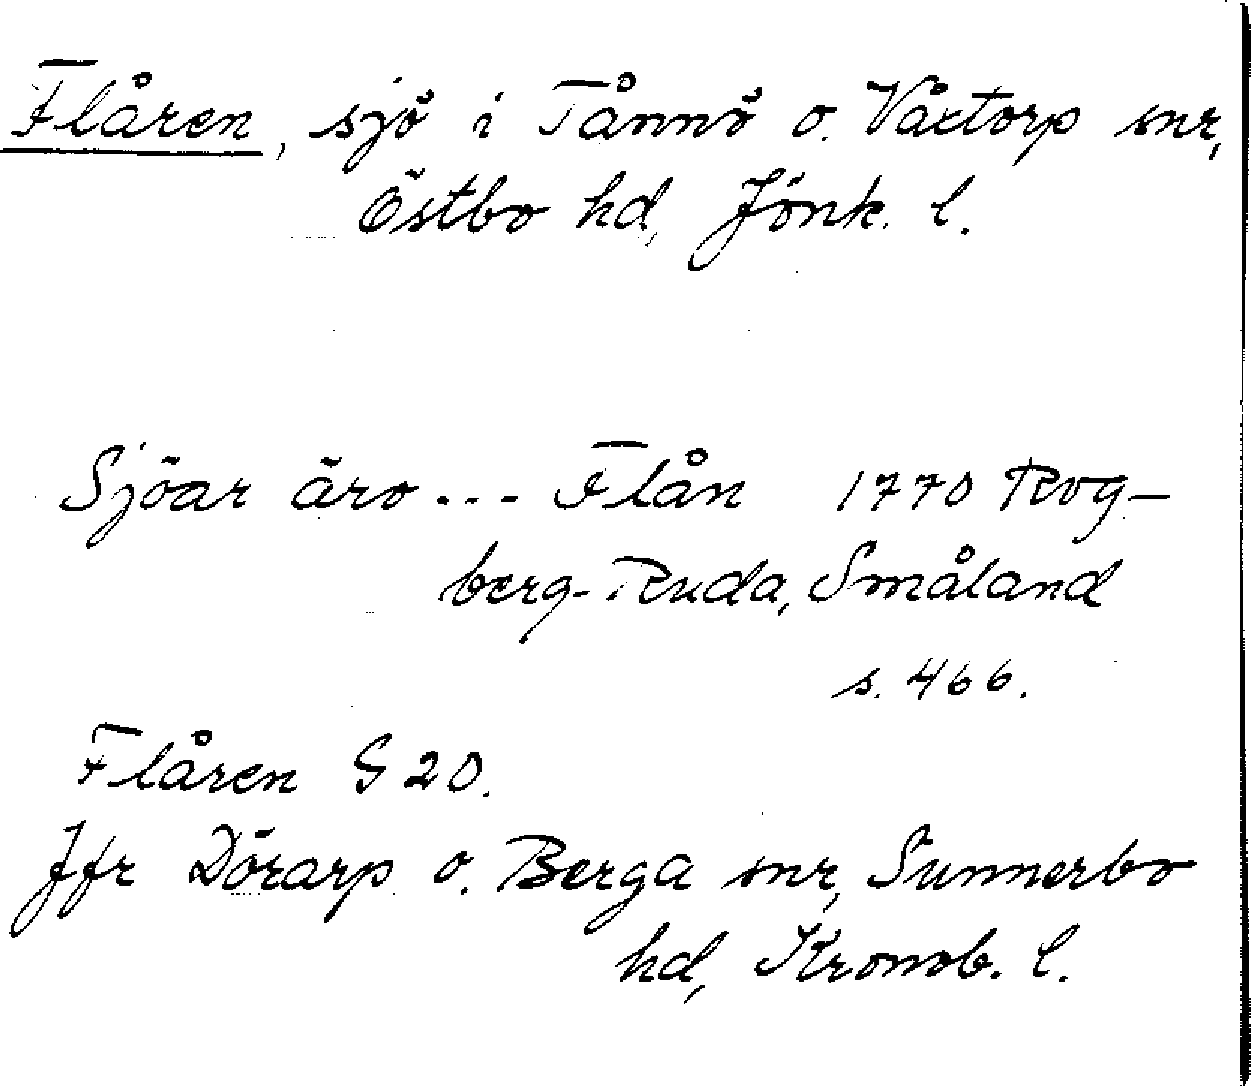 Flåren, sjö i Tånnö o. Våxtorp snr,
Östbo hd, Jönk. l.
Sjöar äro... Flån 1770 Rog-
berg-Ruda, Småland
s. 466.
Flåren G 20.
Jfr Dörarp o. Berga snr, Sunnerbo
hd, Kronob. l.